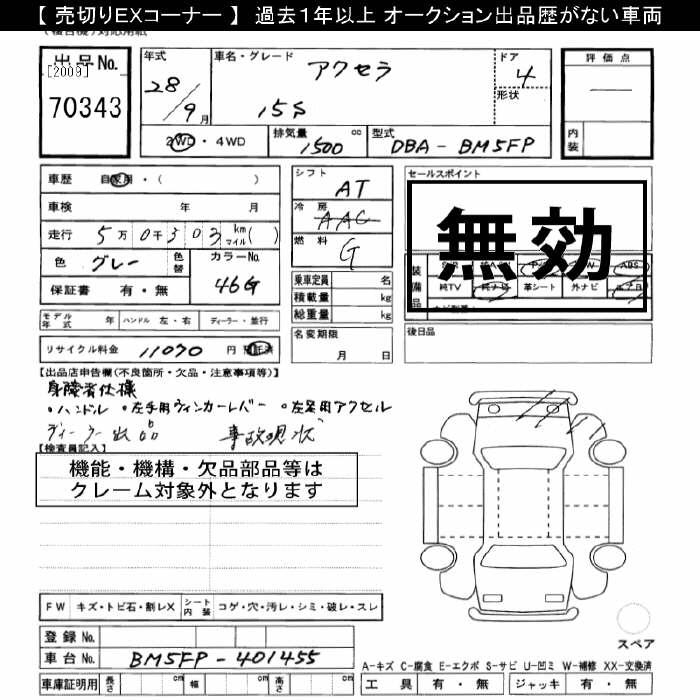 【 売切りEXコーナー 】 過去1年以上 オークション出品歴がない車両
出品No.
[2009]
70343
年式
28/9月
車名・グレード
アクセラ
15S
ドア
4
形状
評価点
—
内装
2WD・4WD
排気量
1500 cc
型式
DBA-BM5FP
車歴 自家用・( )
車検 年 月
走行 5万0千303 km マイル( )
色 グレー 色替
カラーNo.
46G
保証書 有・無
シフト
AT
冷房
AAC
燃料
G
乗車定員 名
積載量 kg
総重量 kg
名変期限
月 日
セールスポイント
無効
装備品
ABS
純TV 純ナビ 革シート 外ナビ エアB
後日品
モデル年式 年 ハンドル 左・右 ディーラー・並行
リサイクル料金 11070 円 預託済
【出品店申告欄(不良箇所・欠品・注意事項等)】
身障者仕様
・ハンドル ・左手用ウィンカーレバー ・左足用アクセル
ディーラー出品 事故現状
【検査員記入】
機能・機構・欠品部品等は
クレーム対象外となります
FW キズ・トビ石・割レX シート内装 コゲ・穴・汚レ・シミ・破レ・スレ
登録No.
車台No. BM5FP-401455
車庫証明用 長さ cm 幅 cm 高さ cm
スペア
A-キズ C-腐食 E-エクボ S-サビ U-凹ミ W-補修 XX-交換済
工具 有・無 ジャッキ 有・無